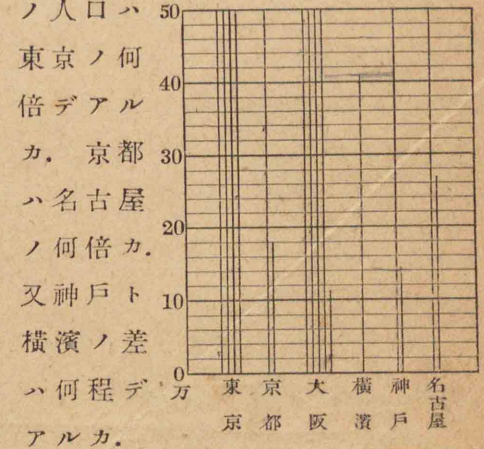 ノ人口ハ
東京ノ何
倍デアル
カ. 京都
ハ名古屋
ノ何倍カ.
又神戸ト
横濱ノ差
ハ何程デ
アルカ.
50
40
30
20
10
0
万
東京
京都
大阪
横濱
神戸
名古屋